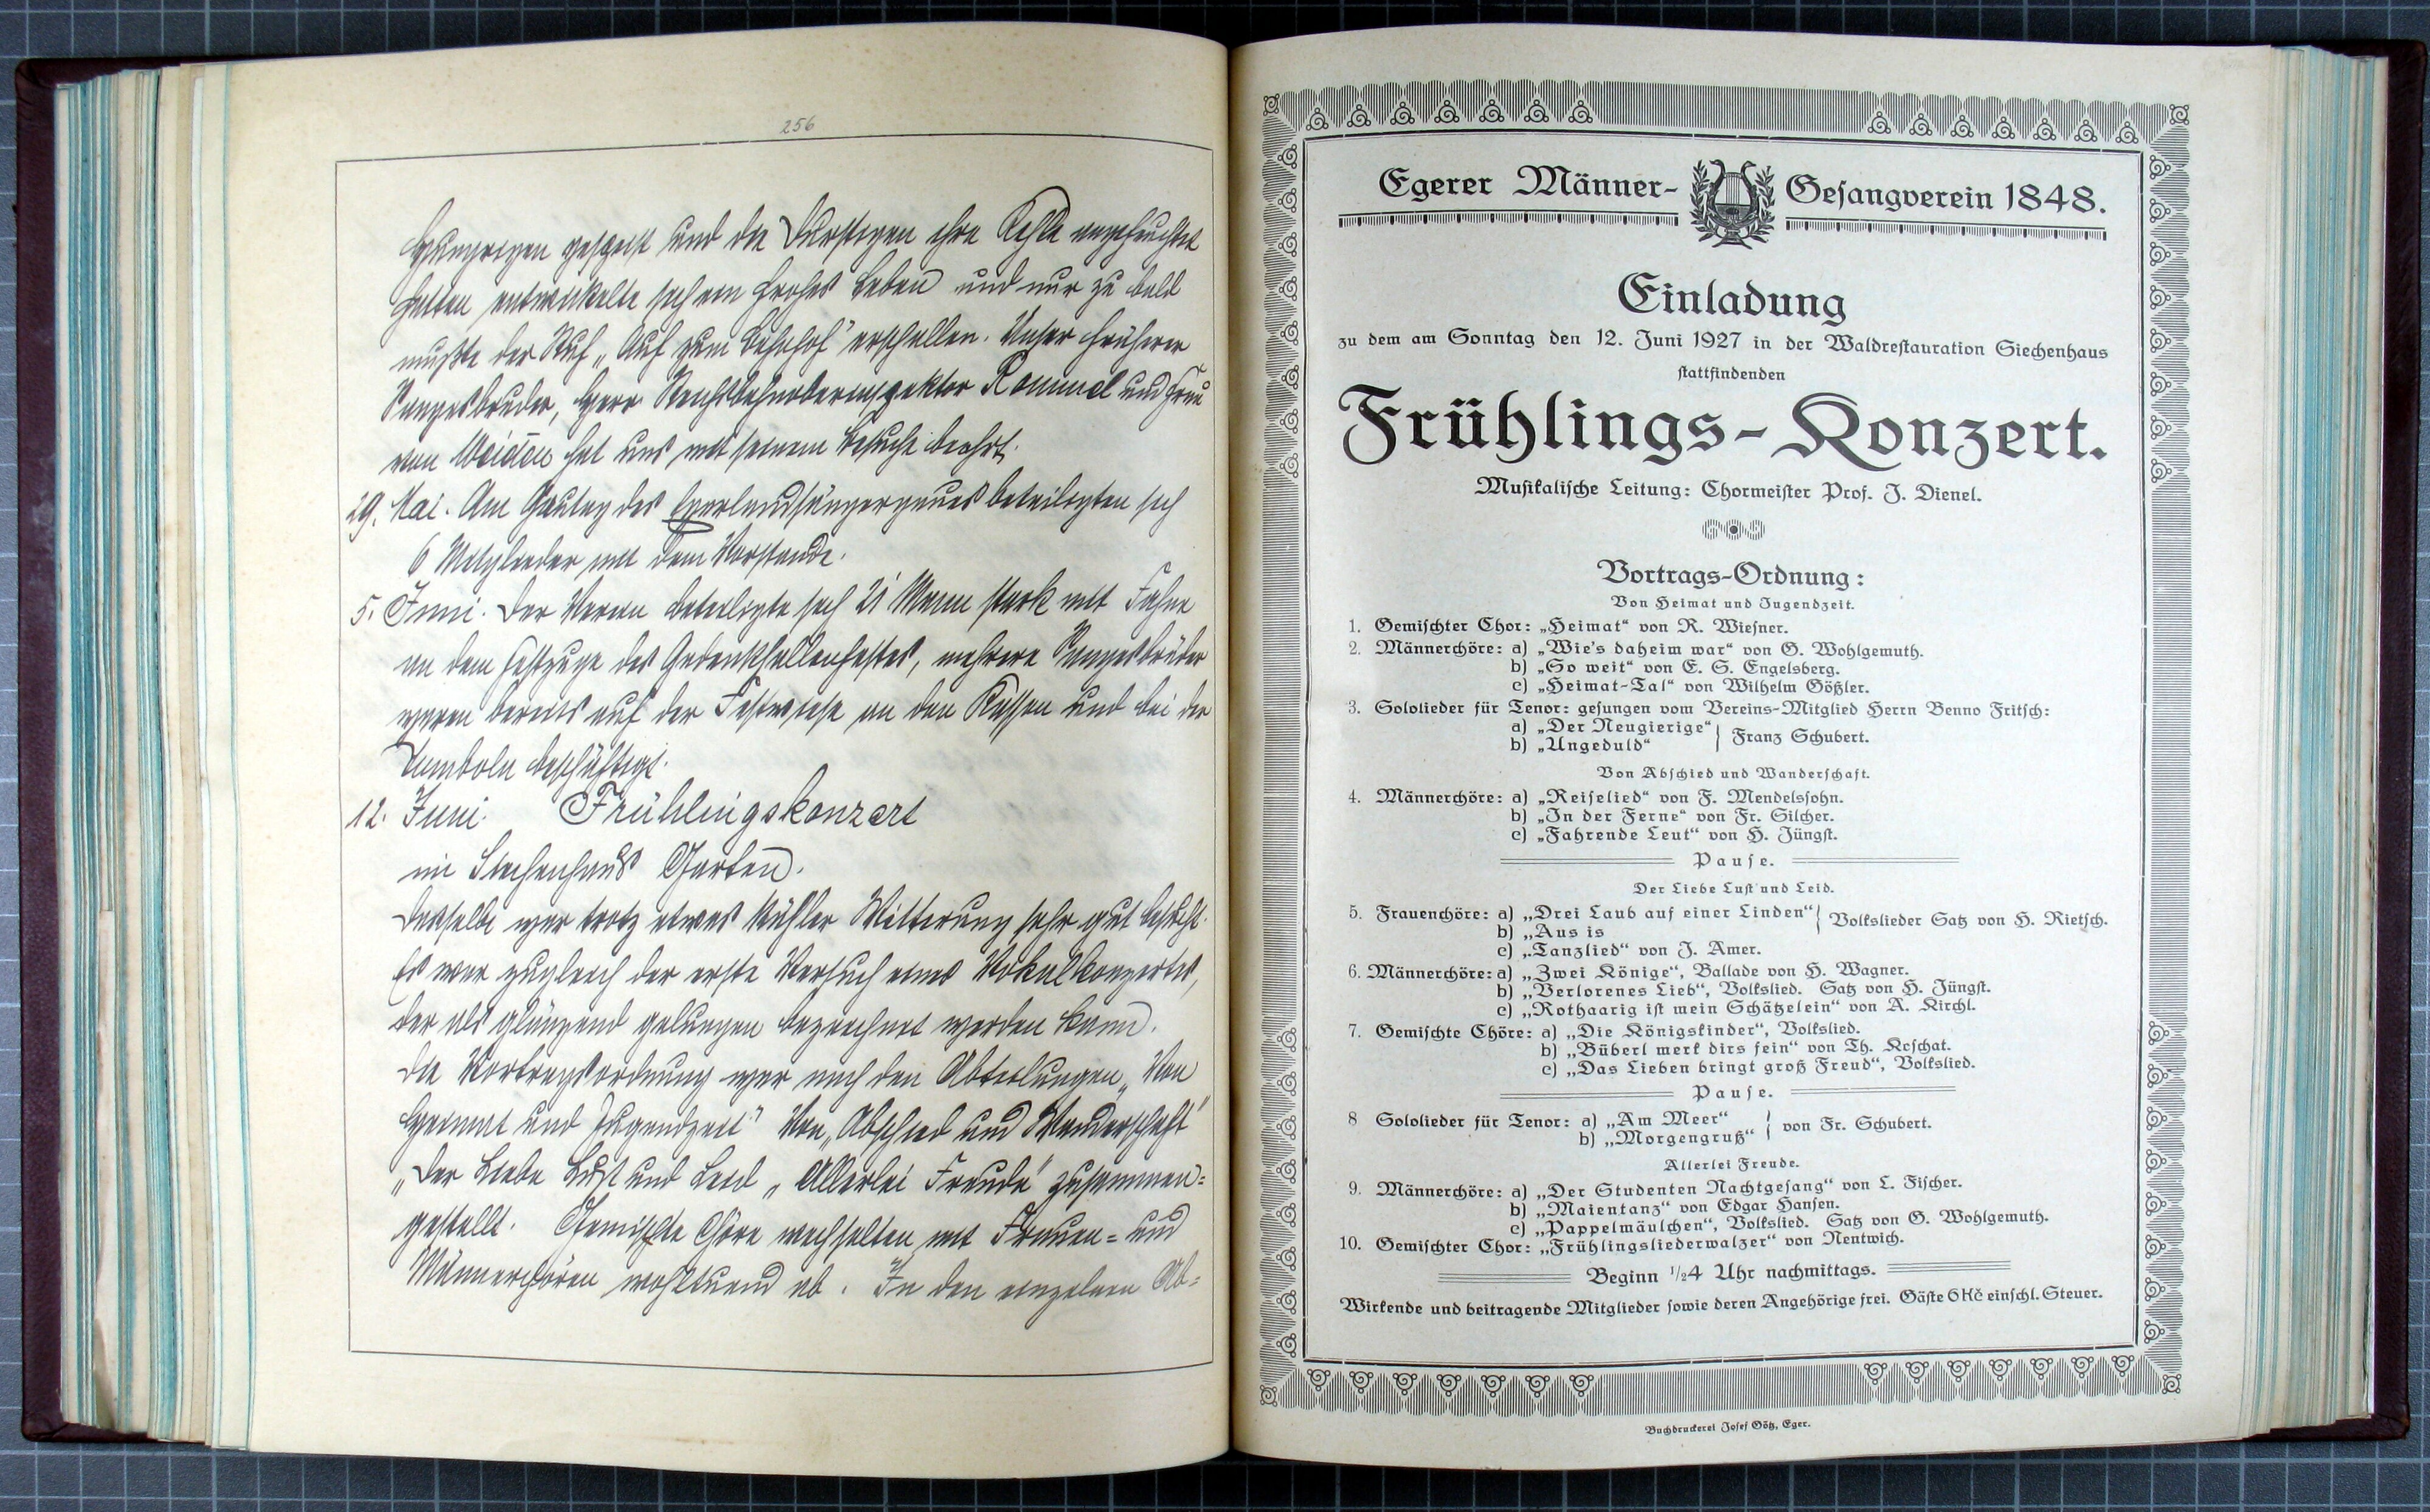 256
Hungrigen gespeist und die Durstigen ihre Kehle angefeuchtet
hatten entwickelte sich ein frohes Leben und nur zu bald
mußte der Ruf „Auf zum Bahnhof" erschallen. Unser früherer
Sangesbruder, Herr Reichsbahnoberinspektor Rommel und Frau
von Weiden hat uns mit seinem Besuche beehrt.
29. Mai. Am Gautag des Egerlandsängergaues beteiligten sich
6 Mitglieder mit dem Vorstande.
5. Juni. Der Verein beteiligte sich 21 Mann stark mit Fahne
an dem Festzuge des Gedenkhallenfestes, mehrere Sangesbrüder
waren bereits auf der Festwiese an den Kassen und bei der
Tombola beschäftigt.
12. Juni. Frühlingskonzert
im Siechenhaus Garten.
Dasselbe war trotz etwas kühler Witterung sehr gut besucht.
Es war zugleich der erste Versuch eines Vokalkonzertes,
der als glänzend gelungen bezeichnet werden kann.
Die Vortragsordnung war nach den Abteilungen „Von
Heimat und Jugendzeit" Von „Abschied und Wanderschaft"
„Der Liebe Lust und Leid „Allerlei Freude" zusammen=
gestellt. Gemischte Chöre wechselten mit Frauen= und
Männerchören wohltuend ab. In den einzelnen Ab=
Egerer Männer-Gesangverein 1848.
Einladung
zu dem am Sonntag den 12. Juni 1927 in der Waldrestauration Siechenhaus
stattfindenden
Frühlings-Konzert.
Musikalische Leitung: Chormeister Prof. J. Dienel.
Vortrags-Ordnung:
Von Heimat und Jugendzeit.
1. Gemischter Chor: „Heimat“ von R. Wiesner.
2. Männerchöre: a) „Wie's daheim war“ von G. Wohlgemuth.
b) „So weit“ von E. S. Engelsberg.
c) „Heimat-Tal“ von Wilhelm Gößler.
3. Sololieder für Tenor: gesungen vom Vereins-Mitglied Herrn Benno Fritsch:
a) „Der Neugierige“
b) „Ungeduld“ } Franz Schubert.
Von Abschied und Wanderschaft.
4. Männerchöre: a) „Reiselied“ von F. Mendelssohn.
b) „In der Ferne“ von Fr. Silcher.
c) „Fahrende Leut“ von H. Jüngst.
Pause.
Der Liebe Lust und Leid.
5. Frauenchöre: a) „Drei Laub auf einer Linden“
b) „Aus is } Volkslieder Satz von H. Rietsch.
c) „Tanzlied“ von J. Amer.
6. Männerchöre: a) „Zwei Könige“, Ballade von H. Wagner.
b) „Verlorenes Lieb“, Volkslied. Satz von H. Jüngst.
c) „Rothaarig ist mein Schätzelein“ von A. Kirchl.
7. Gemischte Chöre: a) „Die Königskinder“, Volkslied.
b) „Büberl merk dirs fein“ von Th. Krschat.
c) „Das Lieben bringt groß Freud“, Volkslied.
Pause.
8 Sololieder für Tenor: a) „Am Meer“
b) „Morgengruß“ } von Fr. Schubert.
Allerlei Freude.
9. Männerchöre: a) „Der Studenten Nachtgesang“ von L. Fischer.
b) „Maientanz“ von Edgar Hansen.
c) „Pappelmäulchen“, Volkslied. Satz von G. Wohlgemuth.
10. Gemischter Chor: „Frühlingsliederwalzer“ von Nentwich.
Beginn 1/24 Uhr nachmittags.
Wirkende und beitragende Mitglieder sowie deren Angehörige frei. Gäste 6 Kč einschl. Steuer.
Buchdruckerei Josef Götz, Eger.